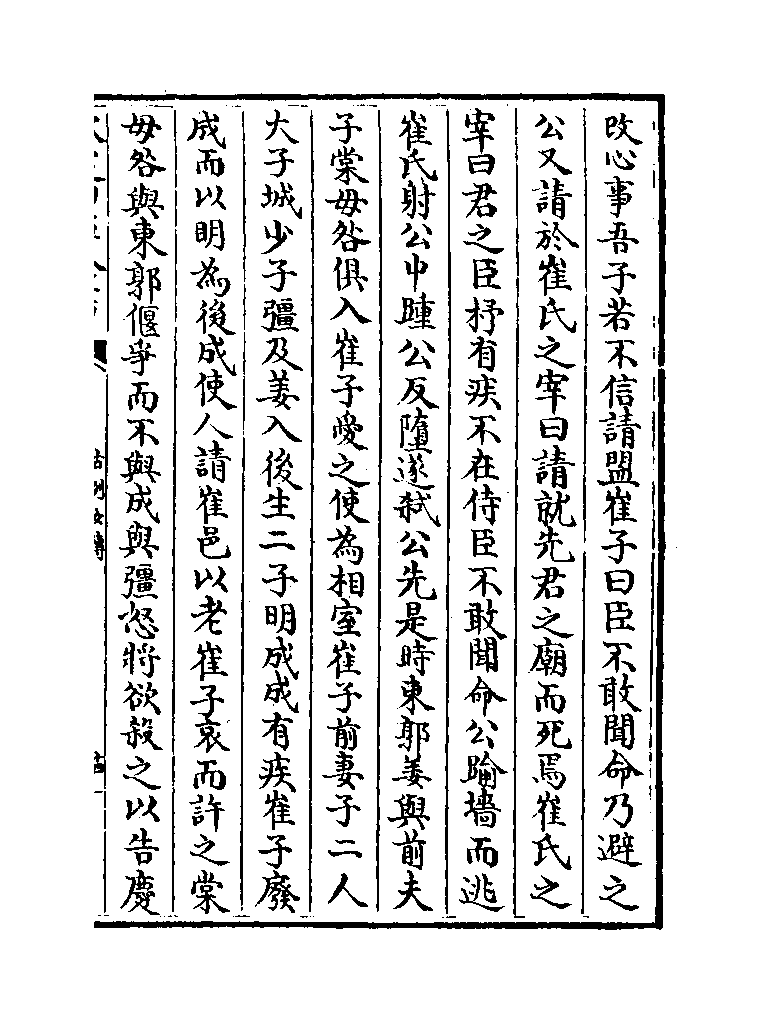 改心事吾子若不信請盟崔子曰臣不敢聞命乃避之
公又請於崔氏之宰曰請就先君之廟而死焉崔氏之
宰曰君之臣抒有疾不在侍臣不敢聞命公踰墻而逃
崔氏射公中踵公反墮遂弑公先是時東郭姜與前夫
子棠毋咎俱入崔子愛之使為相室崔子前妻子二人
大子城少子彊及姜入後生二子明成成有疾崔子廢
成而以明為後成使人請崔邑以老崔子哀而許之棠
毋咎與東郭偃爭而不與成與彊怒將欲殺之以告慶
古列女傳